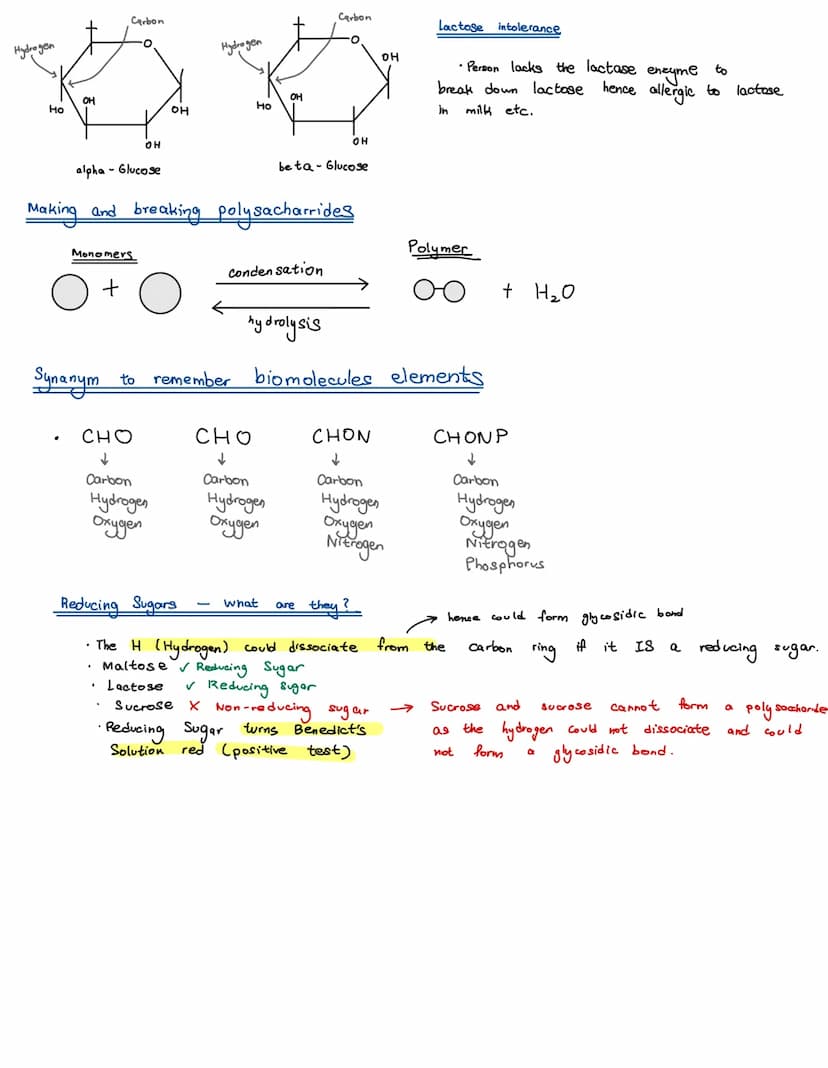 Carbon
Hydrogen
O
HO
OH
OH
OH
alpha - Glucose
Carbon
Hydrogen
O
OH
HO
OH
OH
beta - Glucose
Lactose intolerance
· Person lacks the lactase enzyme to
break down lactose hence allergic to lactose
in milk etc.
Making and breaking polysacharrides
Monomers
+
condensation
hydrolysis
Polymer
+ H₂O
Synanym to remember biomolecules elements
· CHO
↓
Carbon
Hydrogen
Oxygen
CHO
↓
Carbon
Hydrogen
Oxygen
CHON
↓
Carbon
Hydrogen
Oxygen
Nitrogen
CHONP
↓
Carbon
Hydrogen
Oxygen
Nitrogen
Phosphorus
Reducing Sugars – what are they?
→ hence could form glycosidic bond
· The H (Hydrogen) could dissociate from the carbon ring if it IS a reducing sugar.
· Maltose ✓ Reducing Sugar
· Lactose ✓ Reducing Sugar
· Sucrose X Non-reducing sugar → Sucrose and sucrose cannot form a polysaccharide
as the hydrogen could not dissociate and could
not form a glycosidic bond.
· Reducing Sugar turns Benedict's
Solution red (positive test)